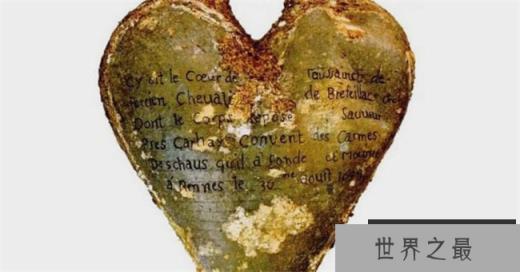 Cy Git le Cœur de Toussaincts de
Perrien Chevali de Brefeillac
Dont le Corps Repose Sauveur
Pres Carhay Convent des Carmes
Deschaus quil à fonde et
à Rennes le 30 Aouit
世界之最